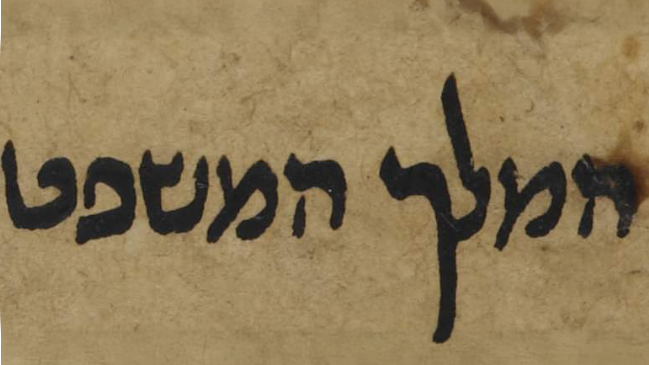 המלך המשפט